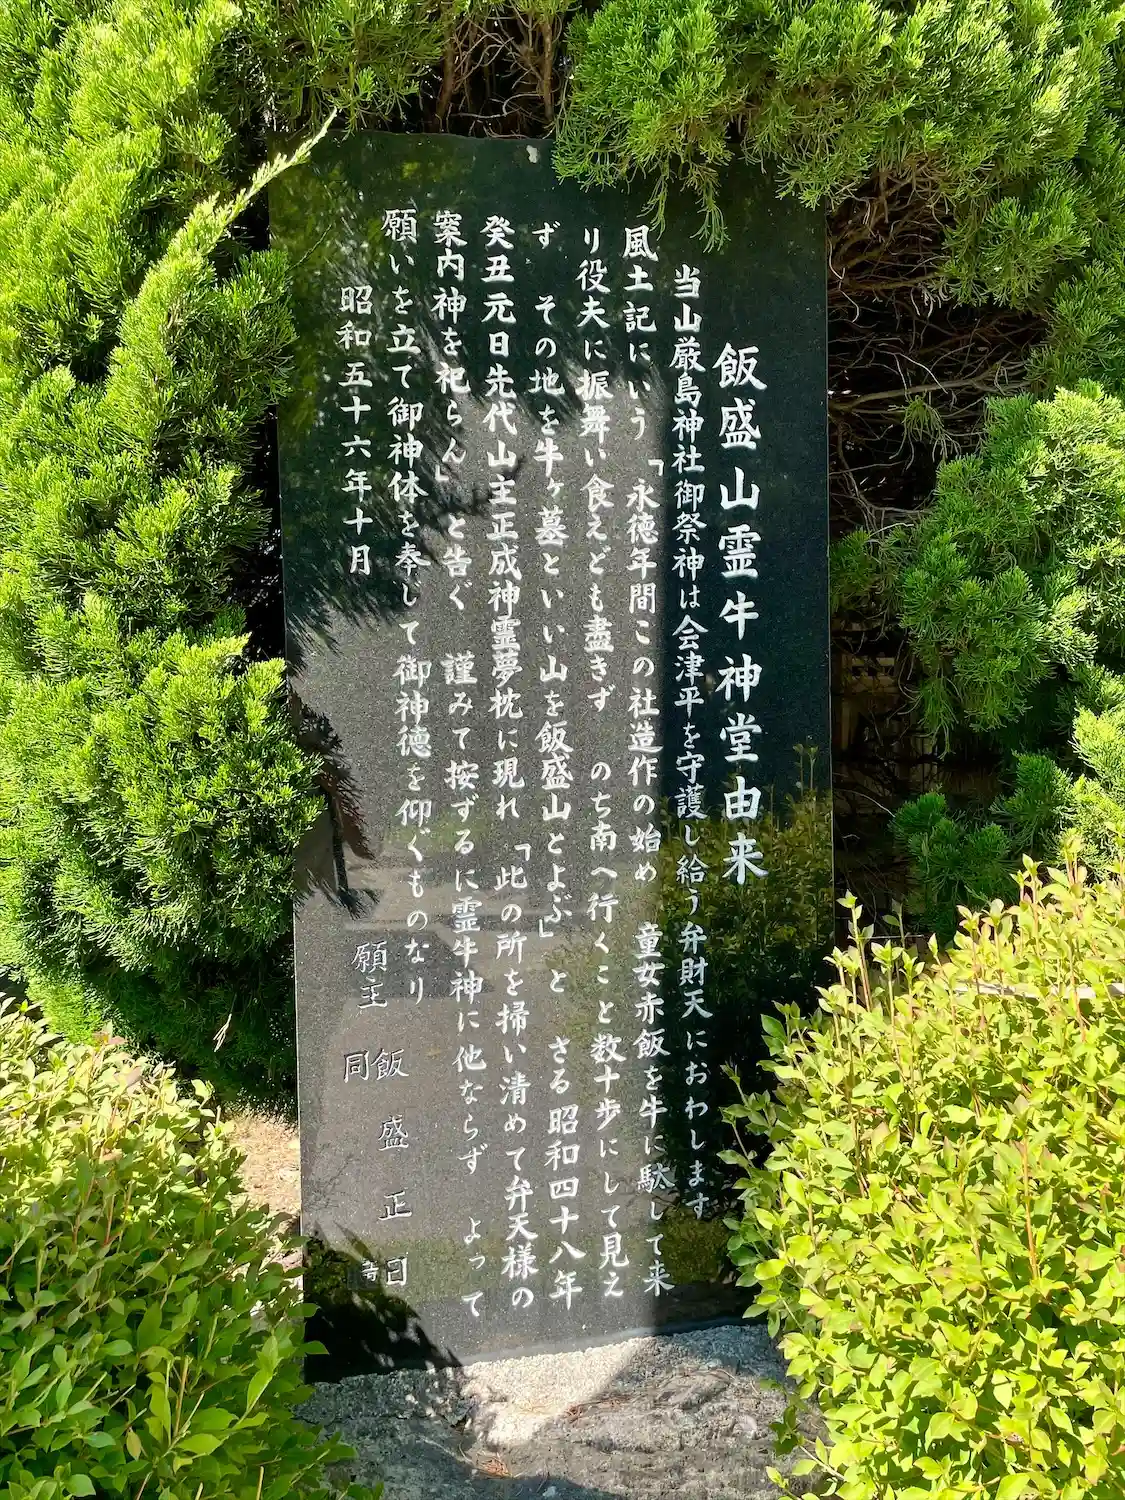 飯盛山霊牛神堂由来
当山厳島神社御祭神は会津平を守護し給う弁財天におわします
風土記にいう「永徳年間この社造作の始め　童女赤飯を牛に駄して来
り役夫に振舞い食えども盡きず　のち南へ行くこと数十歩にして見え
ず　その地を牛ヶ墓といい山を飯盛山とよぶ」と　さる昭和四十八年
癸丑元日先代山主正成神霊夢枕に現れ「此の所を掃い清めて弁天様の
案内神を祀らん」と告ぐ　謹みて按ずるに霊牛神に他ならず　よって
願いを立て御神体を奉して御神徳を仰ぐものなり
昭和五十六年十月
願主　飯盛正日
同